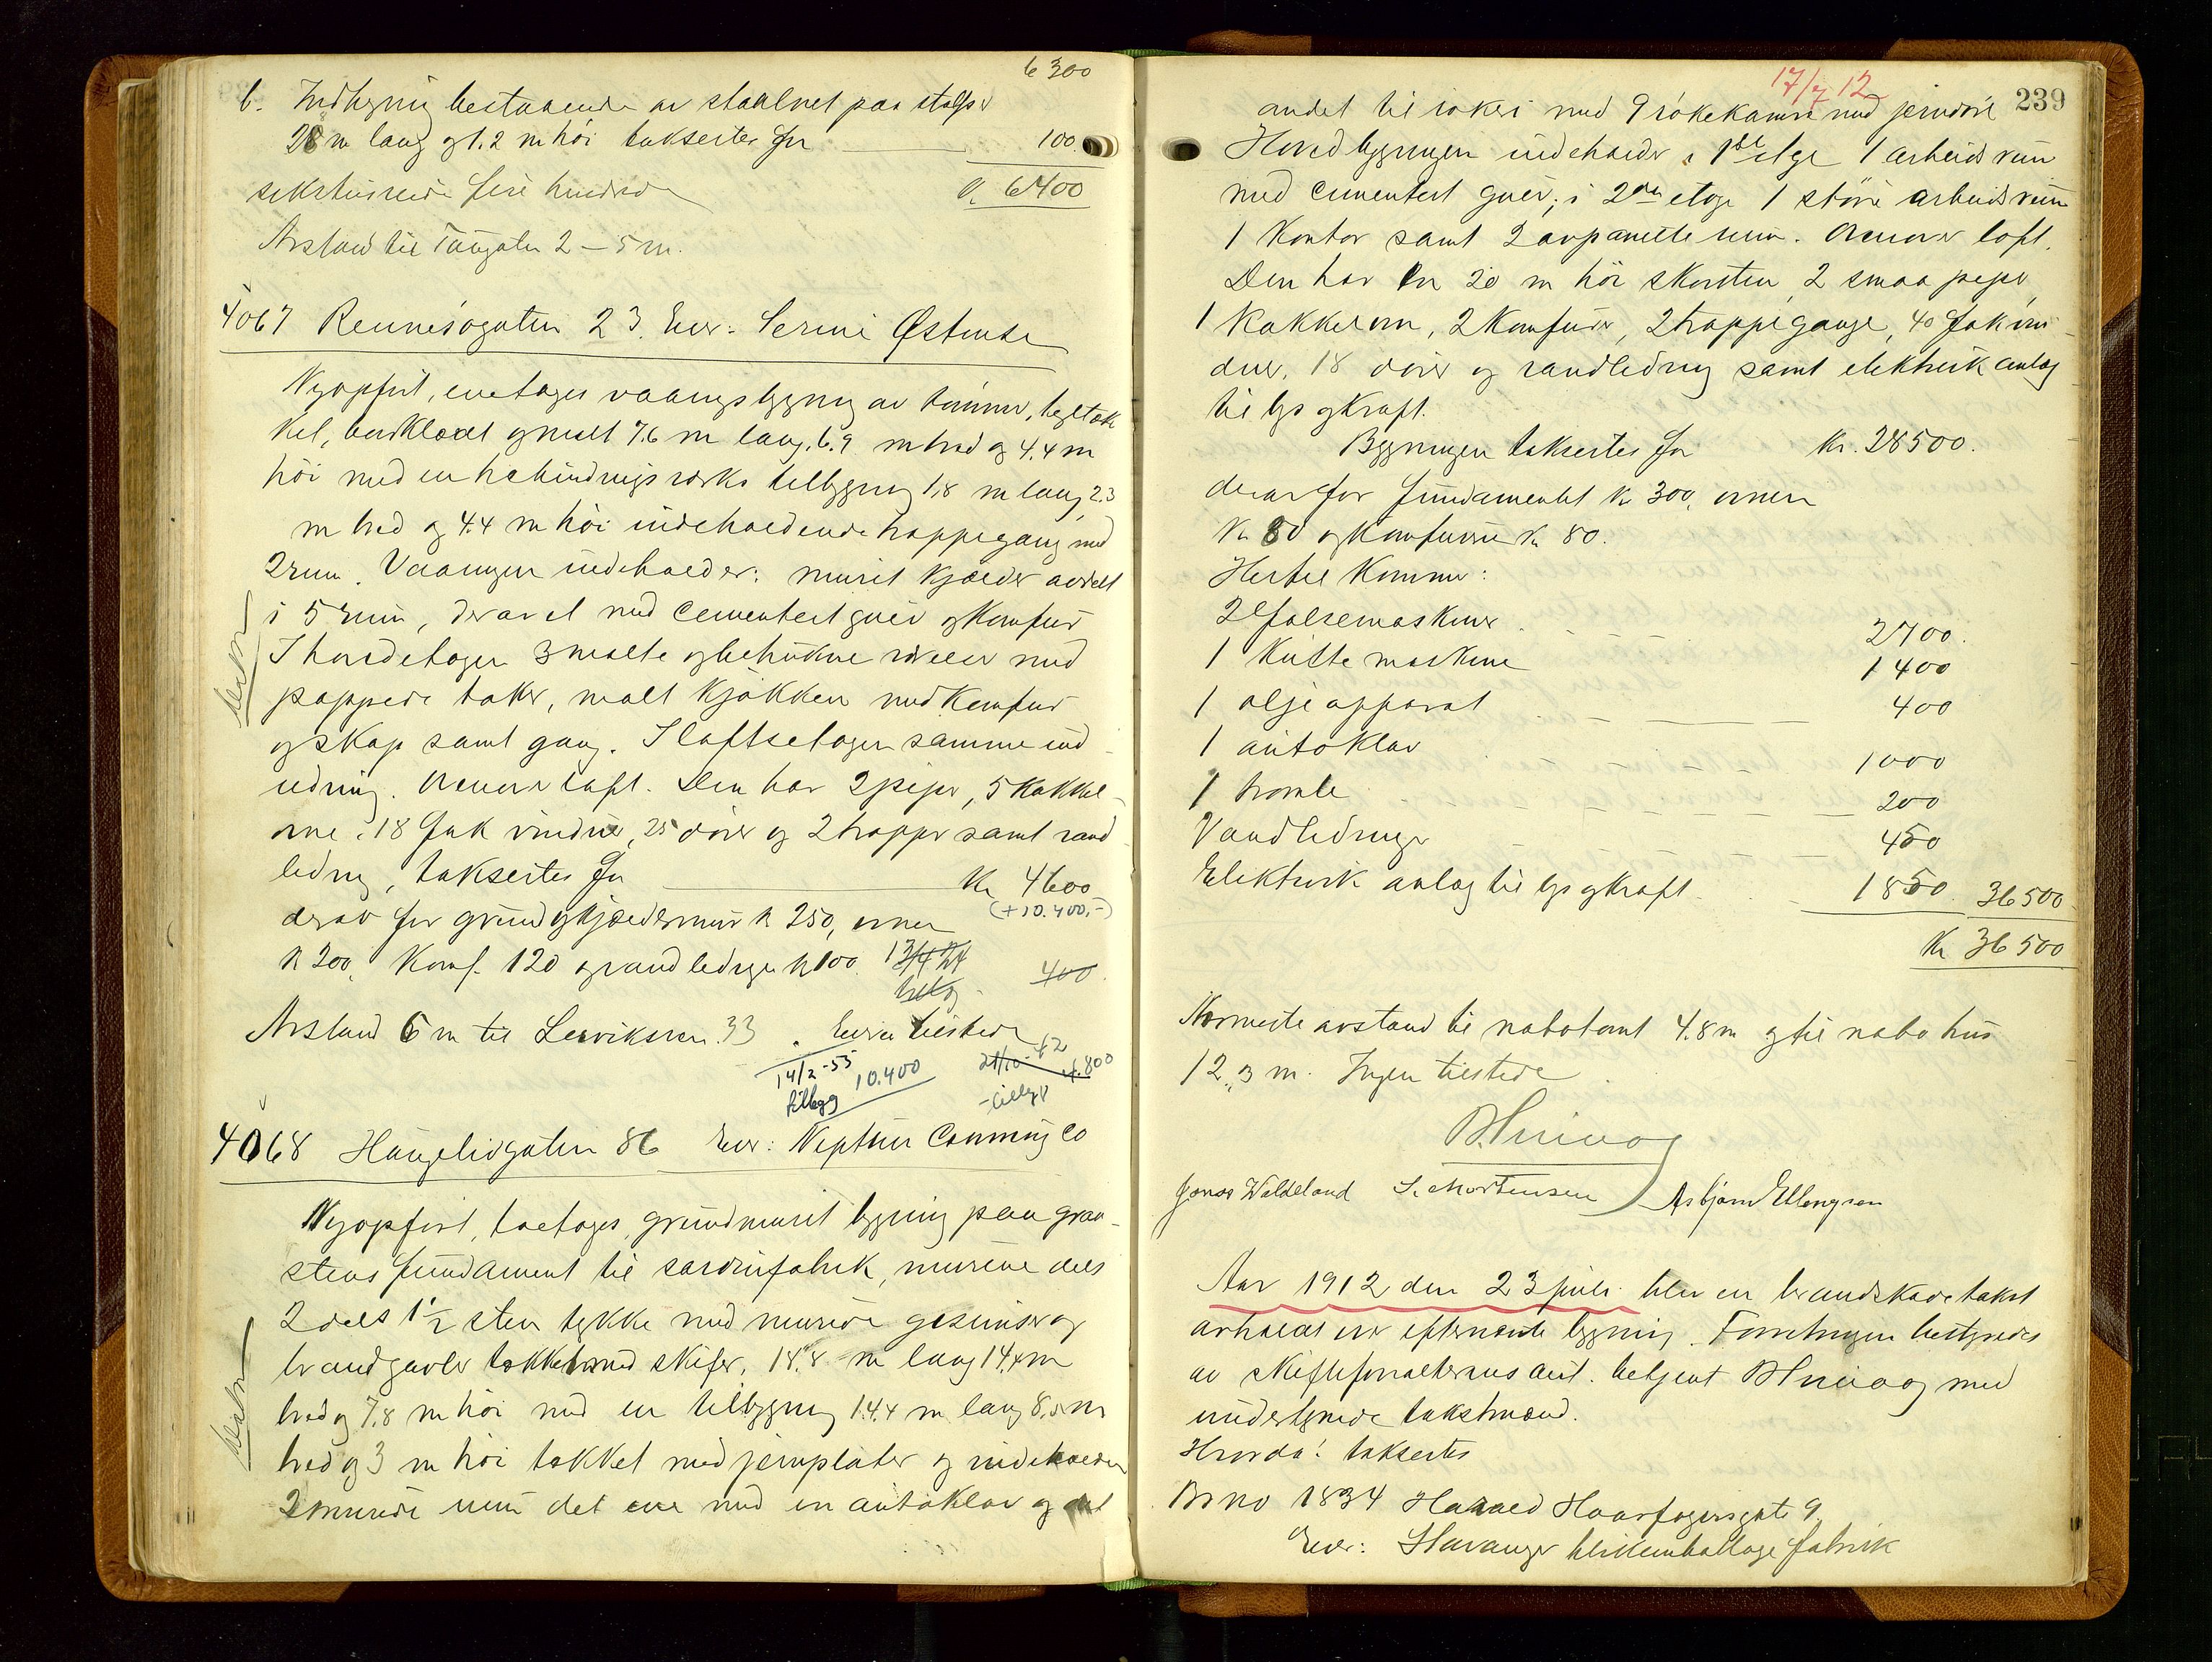 6300
b. Indhegning bestaaende av staalnet paa stolper
28 m lang og 1.2 m høi takseres for 100
sekstusinde fire hundrede K. 6400
Avstand til Taugaten 2 – 5 m.
4067 Rennesøgaten 23. Eier: Serine Østense
Nyopført, enetages vaaningsbygning av tømmer, tegltæk
ket, bordklædt og malt 7.6 m lang, 6.9 m bred og 4.4 m
høi med en halvbindingsverks tilbygning 1,8 m lang, 2.3
m bred og 4.4 m høi indeholdende trappegang med
2 rum. Vaaningen indeholder: muret kjælder avdelt
i 5 rum, derav et med cementert gulv og komfur
I hovedetagen 3 malte og betrukne værelser med
pappede taker, malt kjøkken med komfur
og skap samt gang. I loftsetagen samme ind
redning. Ovenover loft. Den har 2 piper, 5 kakkel-
ovne, 18 fak vinduer, 25 dører og 2 trapper samt vand
ledning, takseres for Kr 4600
(+10.400,-)
derav for grund og kjældermur k 250, ovner
k 200, Komf. 120 og vandledninger k 100. 13/4 24 400
Avstand 6 m til Lervikveien 33. Eieren tilstede
14/2-55 10.400
tillegg
21/10-42 4.800
tillegg
4068 Haugelidgaten 86 Eier: Neptun Canning Co
Nyopført, toetages, grundmuret bygning paa graa-
stens fundament til sardinfabrik, murene dels
2 dels 1½ sten tykke med murede gesimser og
brandgavler tækket med skifer, 18.8 m lang 14.4 m
bred og 7.8 m høi med en tilbygning 14.4 m lang 8.5 m
bred og 3 m høi tækket med jernplater og indeholder
2 murede rum det ene med en autoklav og det
17/7 12
239
andet til røkeri med 9 røkekamre med jerndøre
Hovedbygningen indeholder i 1ste etage 1 arbeidsrum
med cementert gulv, i 2den etage 1 større arbeidsrum
1 kontor samt 2 avpanelte rum. Ovenover loft.
Den har en 20 m høi skorsten, 2 smaa piper,
1 kakkelovn, 2 komfurer, 2 trappegange, 40 fak vin-
duer, 18 dører og vandledning samt elektrisk anlæg
til lys og kraft.
Bygningen takseres for Kr. 28500.
derav for fundamentet k 300, ovnen
k 80 og komfurene k 80.
Hertil kommer:
2 falsemaskiner 2700.
1 kuttemaskine 1400
1 oljeapparat 400
1 autoklav 1000
1 tromle 200
Vandledninger 450
Elektrisk anlæg til lys og kraft. 1850 36500
Kr 36500
Nærmeste avstand til nabotomt 4.8 m og til nabohus
12,3 m. Ingen tilstede
Jonas Waldeland S. Mortensen Asbjørn Ellingsen
Aar 1912 den 23 juli blev en brandskadetakst
avholdt over efternævnte bygning. Forretningen bestyredes
av skifteforvalterens aut. betjent med
undertegnede takstmænd.
Hvorda: takseres
Br no 1834 Harald Haarfagersgate 9.
Eier: Stavanger blikemballage fabrik